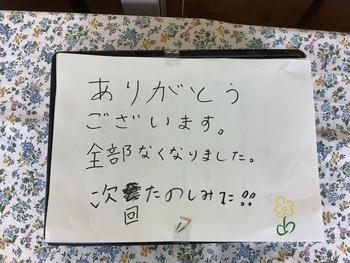 ありがとう
ございます。
全部なくなりました。
次回たのしみに!!